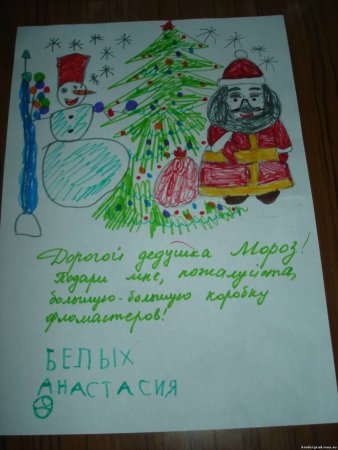 Дорогой дедушка Мороз!
Подари мне, пожалуйста,
большую-большую коробку
фломастеров!
БЕЛЫХ
АНАСТАСИЯ